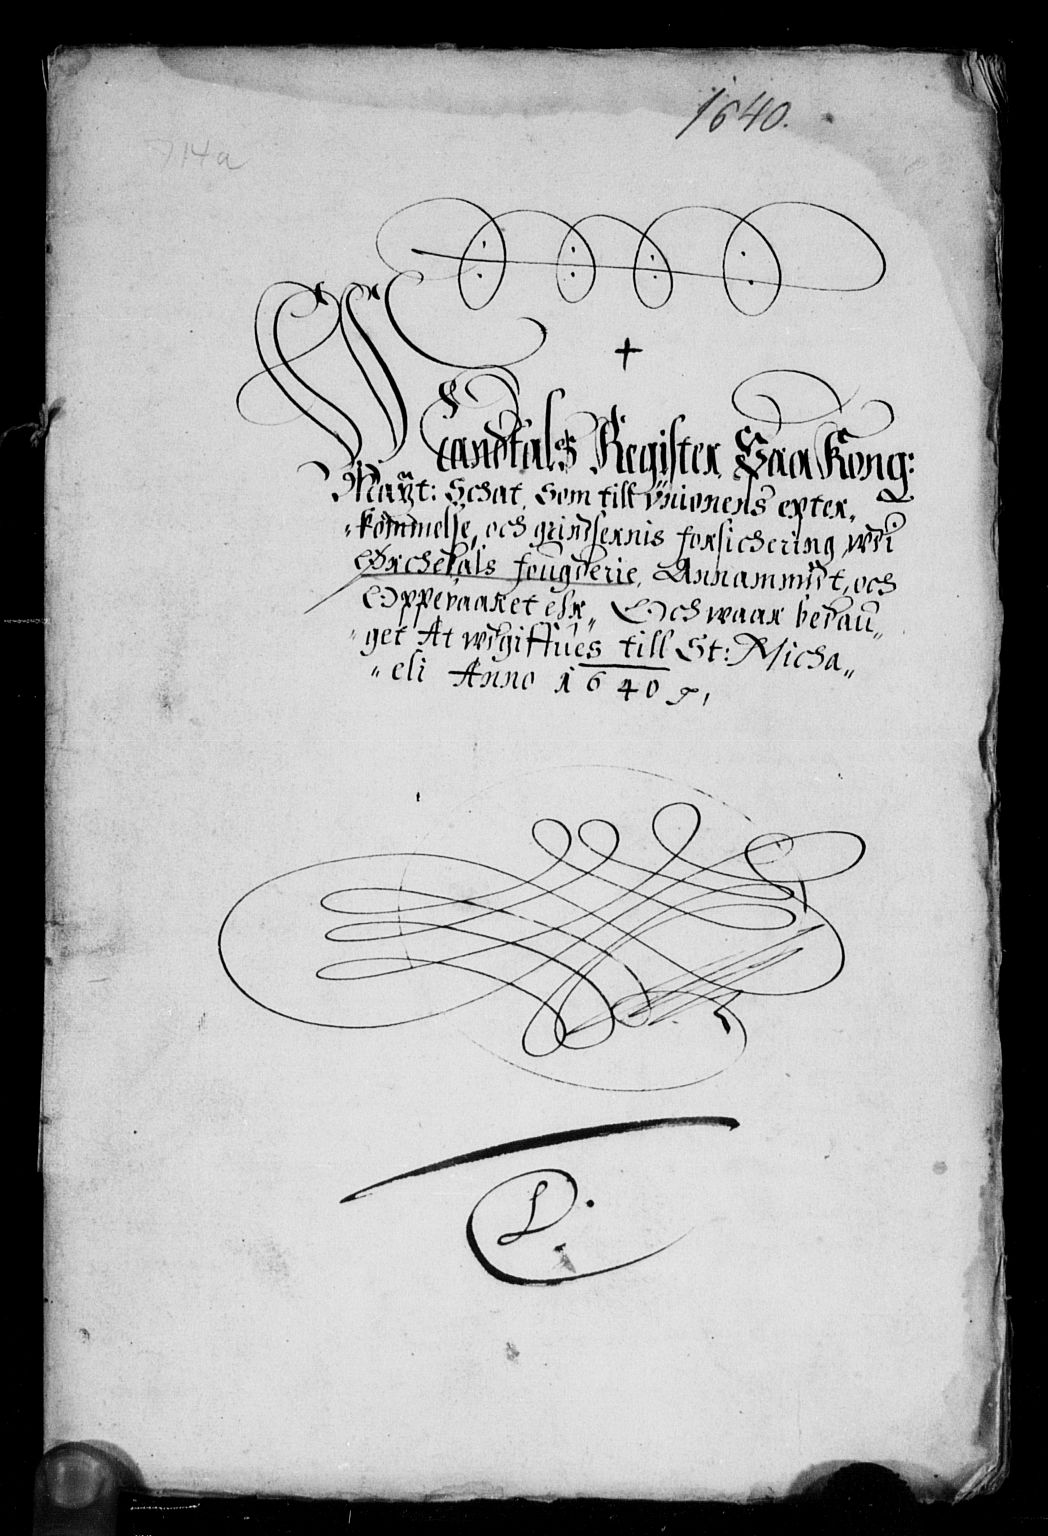 1640.
714a
Mandtals Register Paa Kong:
Maÿt: Schat, Som till Vnionens epter„
„kommelse, och grindsernis forsichering vdi
Ørchedals fougderie, Annammidt, och
Oppebaaret ehr„ Och waar bevau„
„get At wdgiffues till St: Micha„
„eli Anno 1640
D.